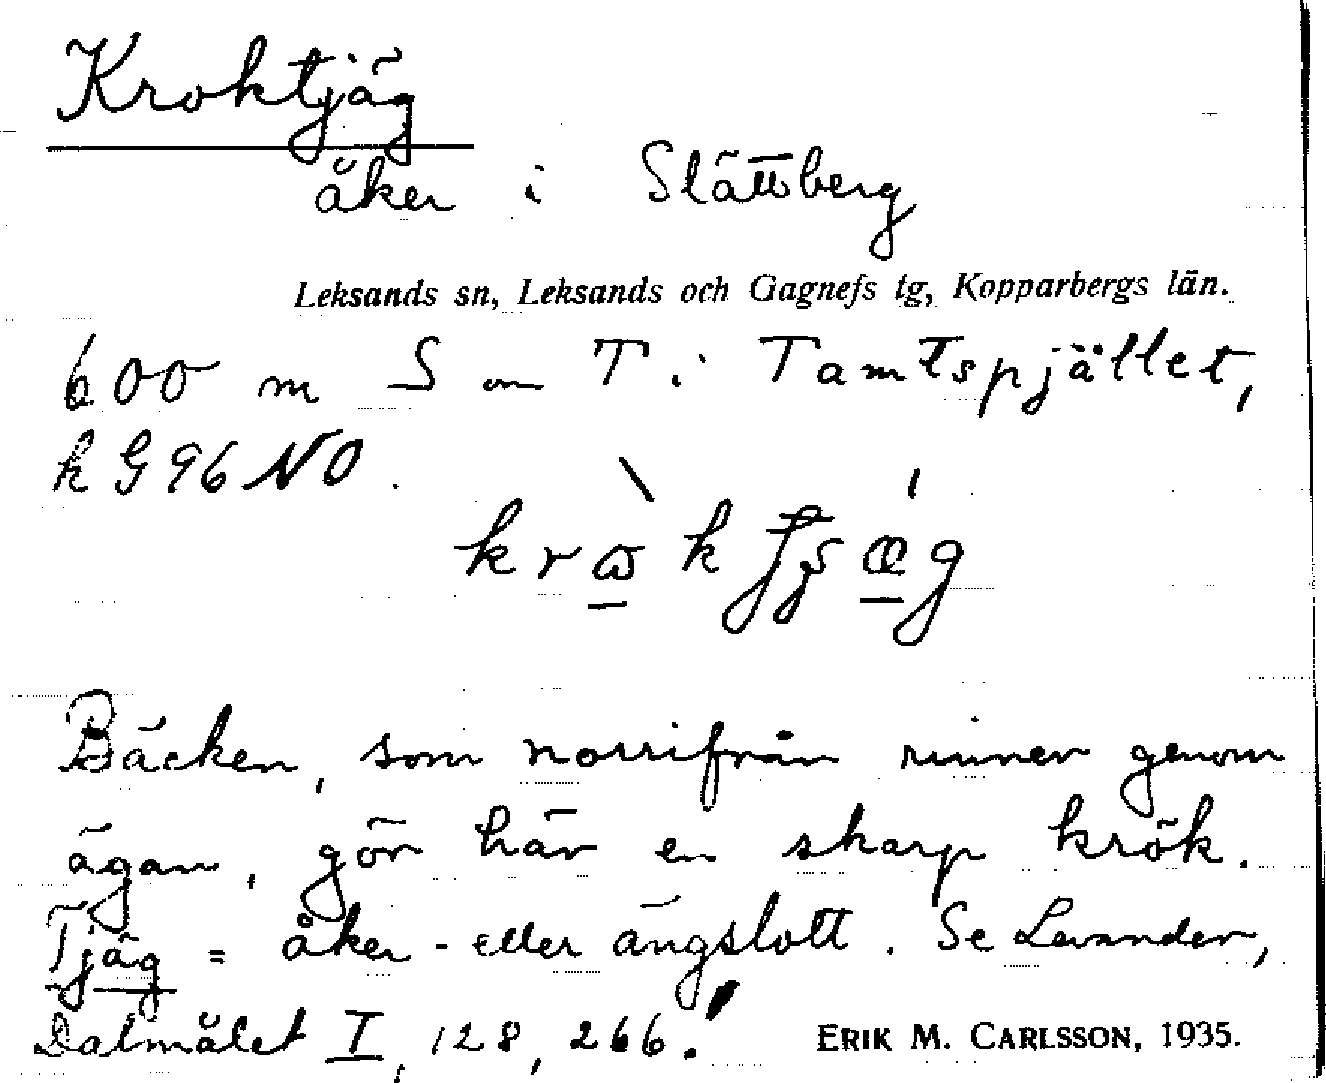 Kroktjäg
åker i Slättberg
Leksands sn, Leksands och Gagnefs tg, Kopparbergs län.
600 m S om T i Tamtspjället,
k G 96 NO.
Bäcken, som norrifrån rinner genom
ägan, gör här en skarp krök.
Tjäg = åker- eller ängslott. Se Levander,
Dalmålet I, 128, 266.
ERIK M. CARLSSON, 1935.